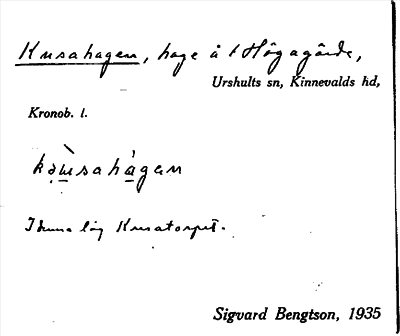 Knsahagen, hage å t Högagärde,
Urshults sn, Kinnevalds hd,
Kronob. l.
I denna låg Knsatorpet.
Sigvard Bengtson, 1935